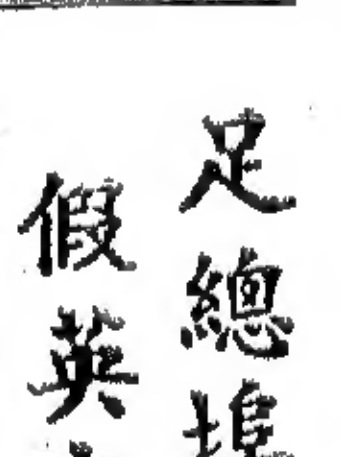 足總埠
假英